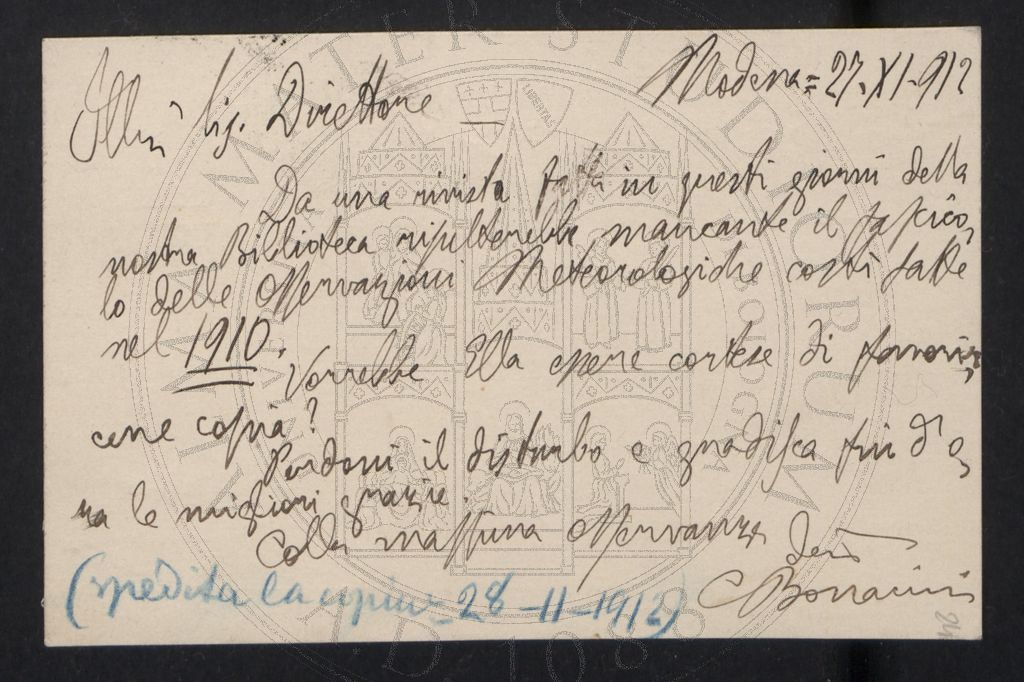 Modena = 27. XI. 912
Illmo Sig. Direttore
Da una rivista fatta in questi giorni della
nostra Biblioteca risulterebbe mancante il fascico,
lo delle Osservazioni Meteorologiche costì fatte
nel 1910.
Vorrebbe Ella essere cortese di favorir,
cene copia?
Perdoni il disturbo e gradisca fin d'o,
ra le migliori grazie.
Colla massima osservanza
C Bonacini
(spedita la copia = 28 - 11 - 1912)